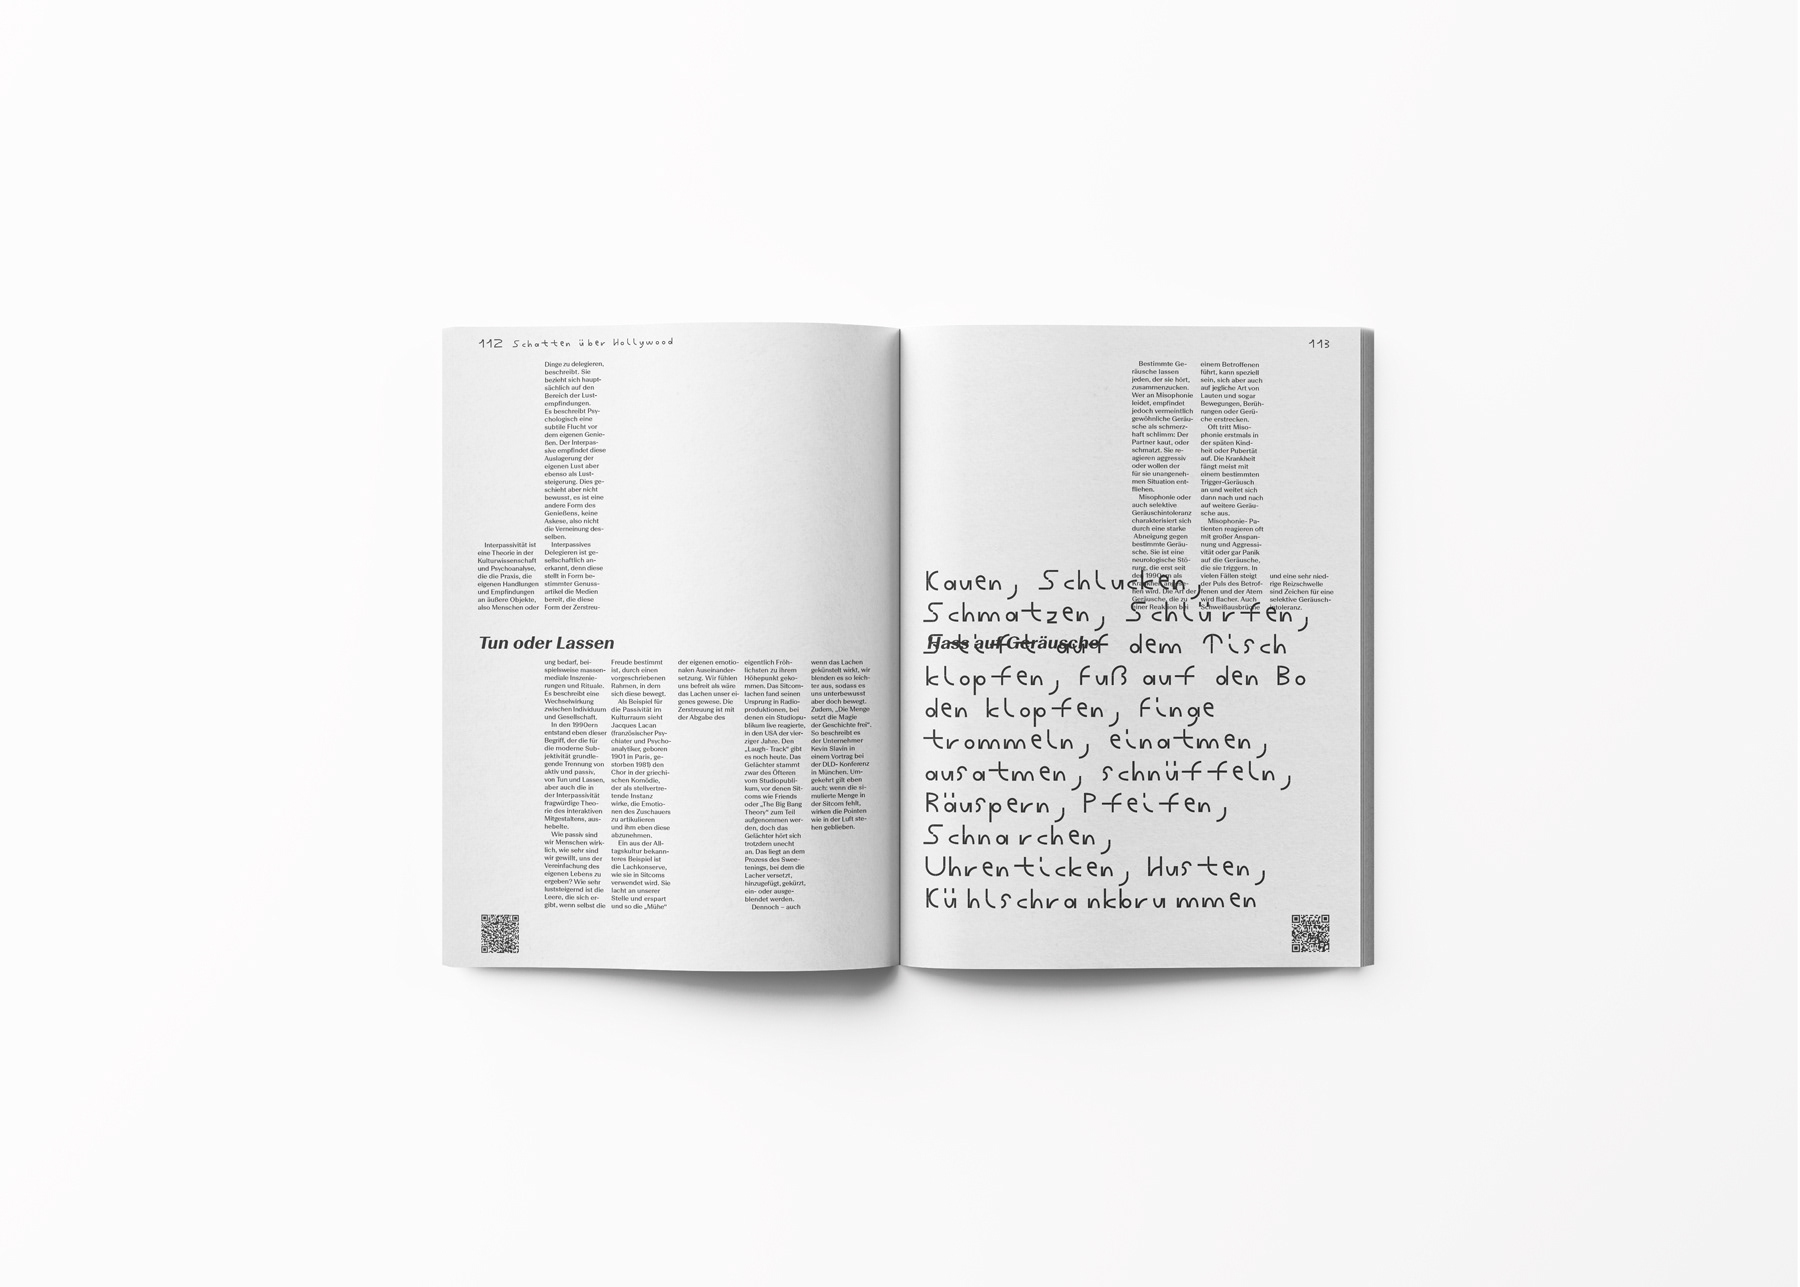 112 Schatten über Hollywood
Interpassivität ist
eine Theorie in der
Kulturwissenschaft
und Psychoanalyse,
die die Praxis, die
eigenen Handlungen
und Empfindungen
an äußere Objekte,
also Menschen oder
Dinge zu delegieren,
beschreibt. Sie
bezieht sich haupt-
sächlich auf den
Bereich der Lust-
empfindungen.
Es beschreibt Psy-
chologisch eine
subtile Flucht vor
dem eigenen Genie-
ßen. Der Interpas-
sive empfindet diese
Auslagerung der
eigenen Lust aber
ebenso als Lust-
steigerung. Dies ge-
schieht aber nicht
bewusst, es ist eine
andere Form des
Genießens, keine
Askese, also nicht
die Verneinung des-
selben.
Interpassives
Delegieren ist ge-
sellschaftlich an-
erkannt, denn diese
stellt in Form be-
stimmter Genuss-
artikel die Medien
bereit, die diese
Form der Zerstreu-
Tun oder Lassen
ung bedarf, bei-
spielsweise massen-
mediale Inszenie-
rungen und Rituale.
Es beschreibt eine
Wechselwirkung
zwischen Individuum
und Gesellschaft.
In den 1990ern
entstand eben dieser
Begriff, der die für
die moderne Sub-
jektivität grundle-
gende Trennung von
aktiv und passiv,
von Tun und Lassen,
aber auch die in
der Interpassivität
fragwürdige Theo-
rie des interaktiven
Mitgestaltens, aus-
hebelte.
Wie passiv sind
wir Menschen wirk-
lich, wie sehr sind
wir gewillt, uns der
Vereinfachung des
eigenen Lebens zu
ergeben? Wie sehr
luststeigernd ist die
Leere, die sich er-
gibt, wenn selbst die
Freude bestimmt
ist, durch einen
vorgeschriebenen
Rahmen, in dem
sich diese bewegt.
Als Beispiel für
die Passivität im
Kulturraum sieht
Jacques Lacan
(französischer Psy-
chiater und Psycho-
analytiker, geboren
1901 in Paris, ge-
storben 1981) den
Chor in der griechi-
schen Komödie,
der als stellvertre-
tende Instanz
wirke, die Emotio-
nen des Zuschauers
zu artikulieren
und ihm eben diese
abzunehmen.
Ein aus der All-
tagskultur bekann-
teres Beispiel ist
die Lachkonserve,
wie sie in Sitcoms
verwendet wird. Sie
lacht an unserer
Stelle und erspart
und so die „Mühe“
der eigenen emotio-
nalen Auseinander-
setzung. Wir fühlen
uns befreit als wäre
das Lachen unser ei-
genes gewese. Die
Zerstreuung ist mit
der Abgabe des
eigentlich Fröh-
lichsten zu ihrem
Höhepunkt geko-
mmen. Das Sitcom-
lachen fand seinen
Ursprung in Radio-
produktionen, bei
denen ein Studiopu-
blikum live reagierte,
in den USA der vier-
ziger Jahre. Den
„Laugh- Track“ gibt
es noch heute. Das
Gelächter stammt
zwar des Öfteren
vom Studiopubli-
kum, vor denen Sit-
coms wie Friends
oder „The Big Bang
Theory“ zum Teil
aufgenommen wer-
den, doch das
Gelächter hört sich
trotzdem unecht
an. Das liegt an dem
Prozess des Swee-
tenings, bei dem die
Lacher versetzt,
hinzugefügt, gekürzt,
ein- oder ausge-
blendet werden.
Dennoch – auch
wenn das Lachen
gekünstelt wirkt, wir
blenden es so leich-
ter aus, sodass es
uns unterbewusst
aber doch bewegt.
Zudem, „Die Menge
setzt die Magie
der Geschichte frei“.
So beschreibt es
der Unternehmer
Kevin Slavin in
einem Vortrag bei
der DLD- Konferenz
in München. Um-
gekehrt gilt eben
auch: wenn die si-
mulierte Menge in
der Sitcom fehlt,
wirken die Pointen
wie in der Luft ste-
hen geblieben.
113
Bestimmte Ge-
räusche lassen
jeden, der sie hört,
zusammenzucken.
Wer an Misophonie
leidet, empfindet
jedoch vermeintlich
gewöhnliche Geräu-
sche als schmerz-
haft schlimm: Der
Partner kaut, oder
schmatzt. Sie re-
agieren aggressiv
oder wollen der
für sie unangeneh-
men Situation ent-
fliehen.
Misophonie oder
auch selektive
Geräuschintoleranz
charakterisiert sich
durch eine starke
Abneigung gegen
bestimmte Geräu-
sche. Sie ist eine
neurologische Stö-
rung, die erst seit
den 1990ern als
Krankheit angese-
hen wird. Die Art der
Geräusche, die zu
einer Reaktion bei
einem Betroffenen
führt, kann speziell
sein, sich aber auch
auf jegliche Art von
Lauten und sogar
Bewegungen, Berüh-
rungen oder Gerü-
che erstrecken.
Oft tritt Miso-
phonie erstmals in
der späten Kind-
heit oder Pubertät
auf. Die Krankheit
fängt meist mit
einem bestimmten
Trigger-Geräusch
an und weitet sich
dann nach und nach
auf weitere Geräu-
sche aus.
Misophonie- Pa-
tienten reagieren oft
mit großer Anspan-
nung und Aggressi-
vität oder gar Panik
auf die Geräusche,
die sie triggern. In
vielen Fällen steigt
der Puls des Betrof-
fenen und der Atem
wird flacher. Auch
Schweißausbrüche
und eine sehr nied-
rige Reizschwelle
sind Zeichen für eine
selektive Geräusch-
intoleranz.
Hass auf Geräusche
Kauen, Schlucken,
Schmatzen, Schlürfen,
Stift auf dem Tisch
klopfen, Fuß auf den Bo
den klopfen, Finge
trommeln, einatmen,
ausatmen, schnüffeln,
Räuspern, Pfeifen,
Schnarchen,
Uhrenticken, Husten,
Kühlschrankbrummen